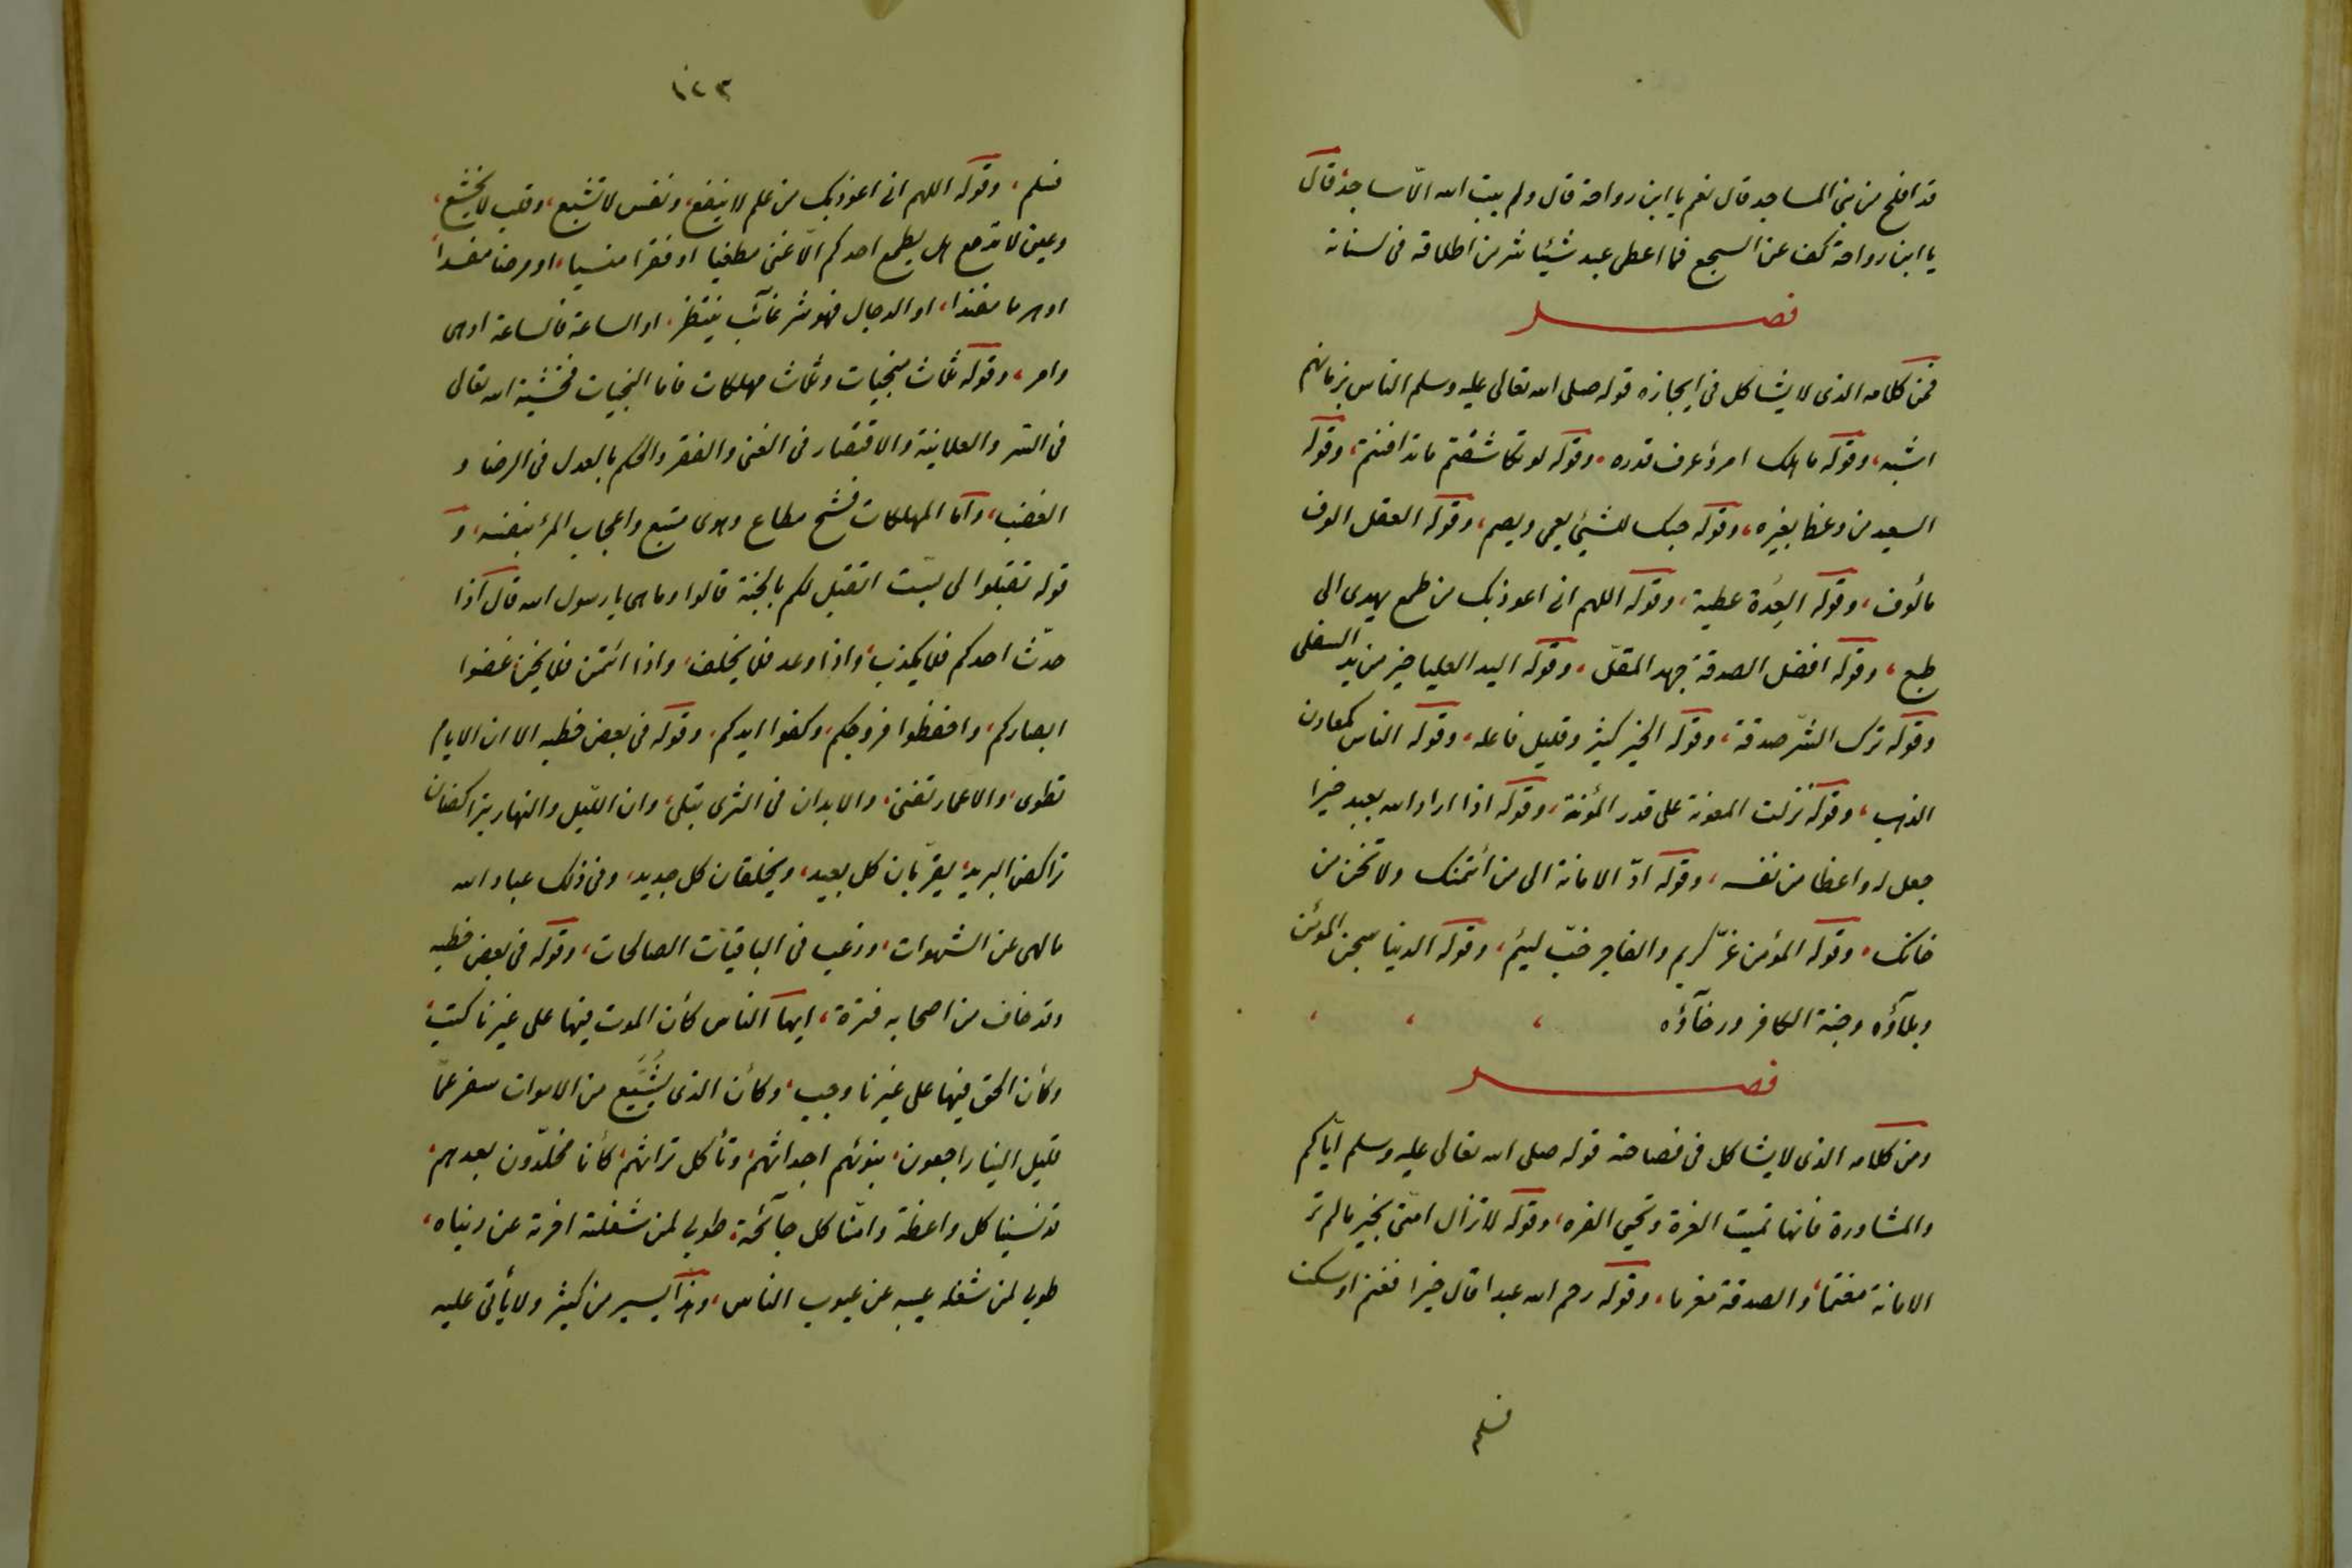 قد افلح من بنى المساجد قال نعم يا ابن رواحة قال ولم يبت الله الّا ساجد قال
يا ابن رواحة كف عن السجع فما اعطى عبد شيئا شر من اطلاقة فى لسانه
فصل
فمن كلامه الذى لا يشاكل فى ايجازه قوله صلى الله تعالى عليه وسلم الناس بزمانهم
اشبه، وقوله ما هلك امرؤ عرف قدره، وقوله لو تكاشفتم ما تدافنتم، وقوله
السعيد من وعظ بغيره، وقوله حبك للشيئ يعمى ويصم، وقوله العقل الوف
مألوف، وقوله العِدَة عطية، وقوله اللهم انى اعوذ بك من طمع يهدى الى
طبع، وقوله افضل الصدقة جهد المقلّ، وقوله اليد العليا خير من يد السفلى
وقوله ترك الشرّ صدقة، وقوله الخير كثير وقليل فاعله، وقوله الناس كمعادن
الذهب، وقوله نزلت المعونة على قدر المؤنة، وقوله اذا اراد الله بعبد خيرا
جعل له واعظا من نفسه، وقوله ادّ الامانة الى من ائتمنك ولا تخن من
خانك، وقوله المؤمن غرّ كريم والفاجر خبّ لئيم، وقوله الدنيا سجن المؤمن
وبلآؤه وجنة الكافر ورخآؤه
فصل
ومن كلامه الذى لا يشاكل فى فصاحته قوله صلى الله تعالى عليه وسلم ايّاكم
والمشاورة فانها تميت الغرة وتحيى العره، وقوله لا تزال امّتى بخير ما لم تر
الامانة مغنما، والصدقة مغرما، وقوله رحم الله عبدا قال خيرا فغنم او سكت
فسلم
١٢٣
فسلم، وقوله اللهم انى اعوذ بك من علم لا ينفع، ونفس لا تشبع، وقلب لا يخشع،
وعين لا تدمع هل يطمع احدكم الّا غنى مطغيا او فقرا منسيا، او مرضا مفسدا،
او هرما مفندا، او الدجال فهو شر غآئب ينتظر، او الساعة فالساعة ادهى
وامر، وقوله ثلاث منجيات وثلاث مهلكات فاما المنجيات فخشية الله تعالى
فى السّر والعلانية والاقتصار فى الغنى والفقر والحكم بالعدل فى الرضا و
الغضب، وامّا المهلكات فشح مطاع وهوى متبع واعجاب المرء بنفسه، و
قوله تقبلوا لى بستّ اتقبل لكم بالجنة قالوا وما هى يا رسول الله قال اذا
حدّث احدكم فلا يكذب، واذا وعد فلا يخلف، واذا ائتمن فلا يخن غضوا
ابصاركم، واحفظوا فروجكم، وكفوا ايديكم، وقوله فى بعض خطبه الا ان الايام
تطوى، والاعمار تفنى، والابدان فى الثرى تبلى، وان اللّيل والنهار يتراكضان
تراكض البريد، يقرّبان كل بعيد، ويخلقان كل جديد، وفى ذلك عباد الله
ما الهى عن الشهوات، ورغب فى الباقيات الصالحات، وقوله فى بعض خطبه
وقد خاف من اصحابه فترة، ايها الناس كأن الموت فيها على غيرنا كتب،
وكأن الحق فيها على غيرنا وجب، وكأن الذى يُشَيَّع من الاموات سفر عمّا
قليل الينا راجعون، نبوئهم اجداثهم، وتأكل تراثهم، كأنا مخلّدون بعدهم،
قد نسينا كل واعظة وامنّا كل جآئحة، طوبى لمن شغلته اخرته عن دنياه،
طوبى لمن شغله عيبه عن عيوب الناس، وهذا يسير من كثير ولا يأتى عليه